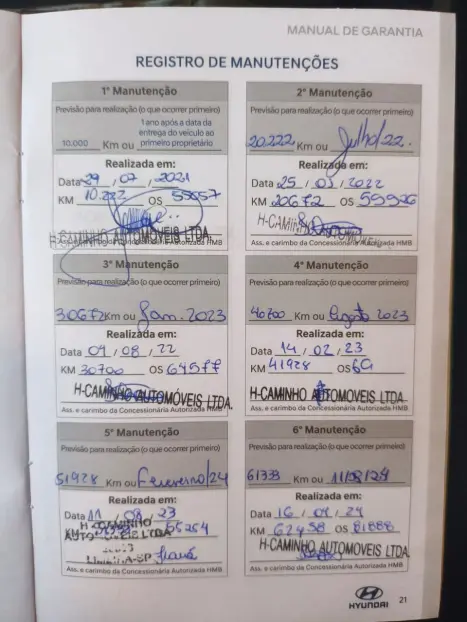 MANUAL DE GARANTIA
REGISTRO DE MANUTENÇÕES
1ª Manutenção
Previsão para realização (o que ocorrer primeiro)
10.000 Km ou 1 ano após a data da entrega do veículo ao primeiro proprietário
Realizada em:
Data 29 / 07 / 2021
KM 10.222 OS
H-CAMINHO AUTOMOVEIS LTDA.
Ass. e carimbo da Concessionária Autorizada HMB
2ª Manutenção
Previsão para realização (o que ocorrer primeiro)
20.222 Km ou Julho/22.
Realizada em:
Data 25 / 01 / 2022
KM 20672 OS
H-CAMINHO AUTOMOVEIS
Ass. e carimbo da Concessionária Autorizada HMB
3ª Manutenção
Previsão para realização (o que ocorrer primeiro)
30672 Km ou Jan. 2023
Realizada em:
Data 04 / 08 / 22
KM 30700 OS 64577
H-CAMINHO AUTOMÓVEIS LTDA.
Ass. e carimbo da Concessionária Autorizada HMB
4ª Manutenção
Previsão para realização (o que ocorrer primeiro)
40700 Km ou Agosto 2023
Realizada em:
Data 14 / 02 / 23
KM 41928 OS
H-CAMINHO AUTOMOVEIS LTDA.
Ass. e carimbo da Concessionária Autorizada HMB
5ª Manutenção
Previsão para realização (o que ocorrer primeiro)
51928 Km ou Fevereiro/24
Realizada em:
Data 11 / 08 / 23
KM OS 65264
H-CAMINHO
AUTOMOVEIS LTDA
Ass. e carimbo da Concessionária Autorizada HMB
6ª Manutenção
Previsão para realização (o que ocorrer primeiro)
61333 Km ou 11/08/24
Realizada em:
Data 16 / 04 / 24
KM 62458 OS 81888
H-CAMINHO AUTOMOVEIS LTDA.
Ass. e carimbo da Concessionária Autorizada HMB
HYUNDAI
21